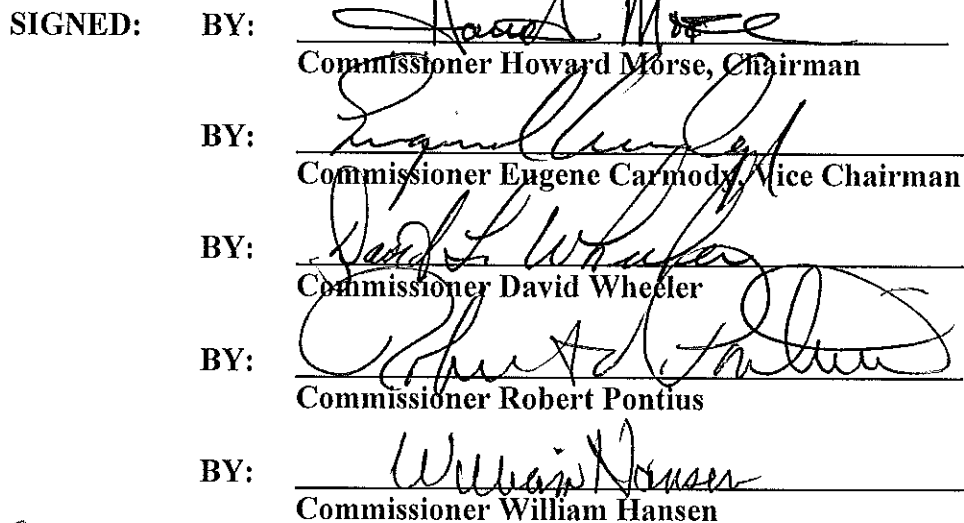 SIGNED: BY: Howard Morse
Commissioner Howard Morse, Chairman
BY:
Commissioner Eugene Carmody, Vice Chairman
BY: David L. Wheeler
Commissioner David Wheeler
BY: Robert Pontius
Commissioner Robert Pontius
BY: William Hansen
Commissioner William Hansen